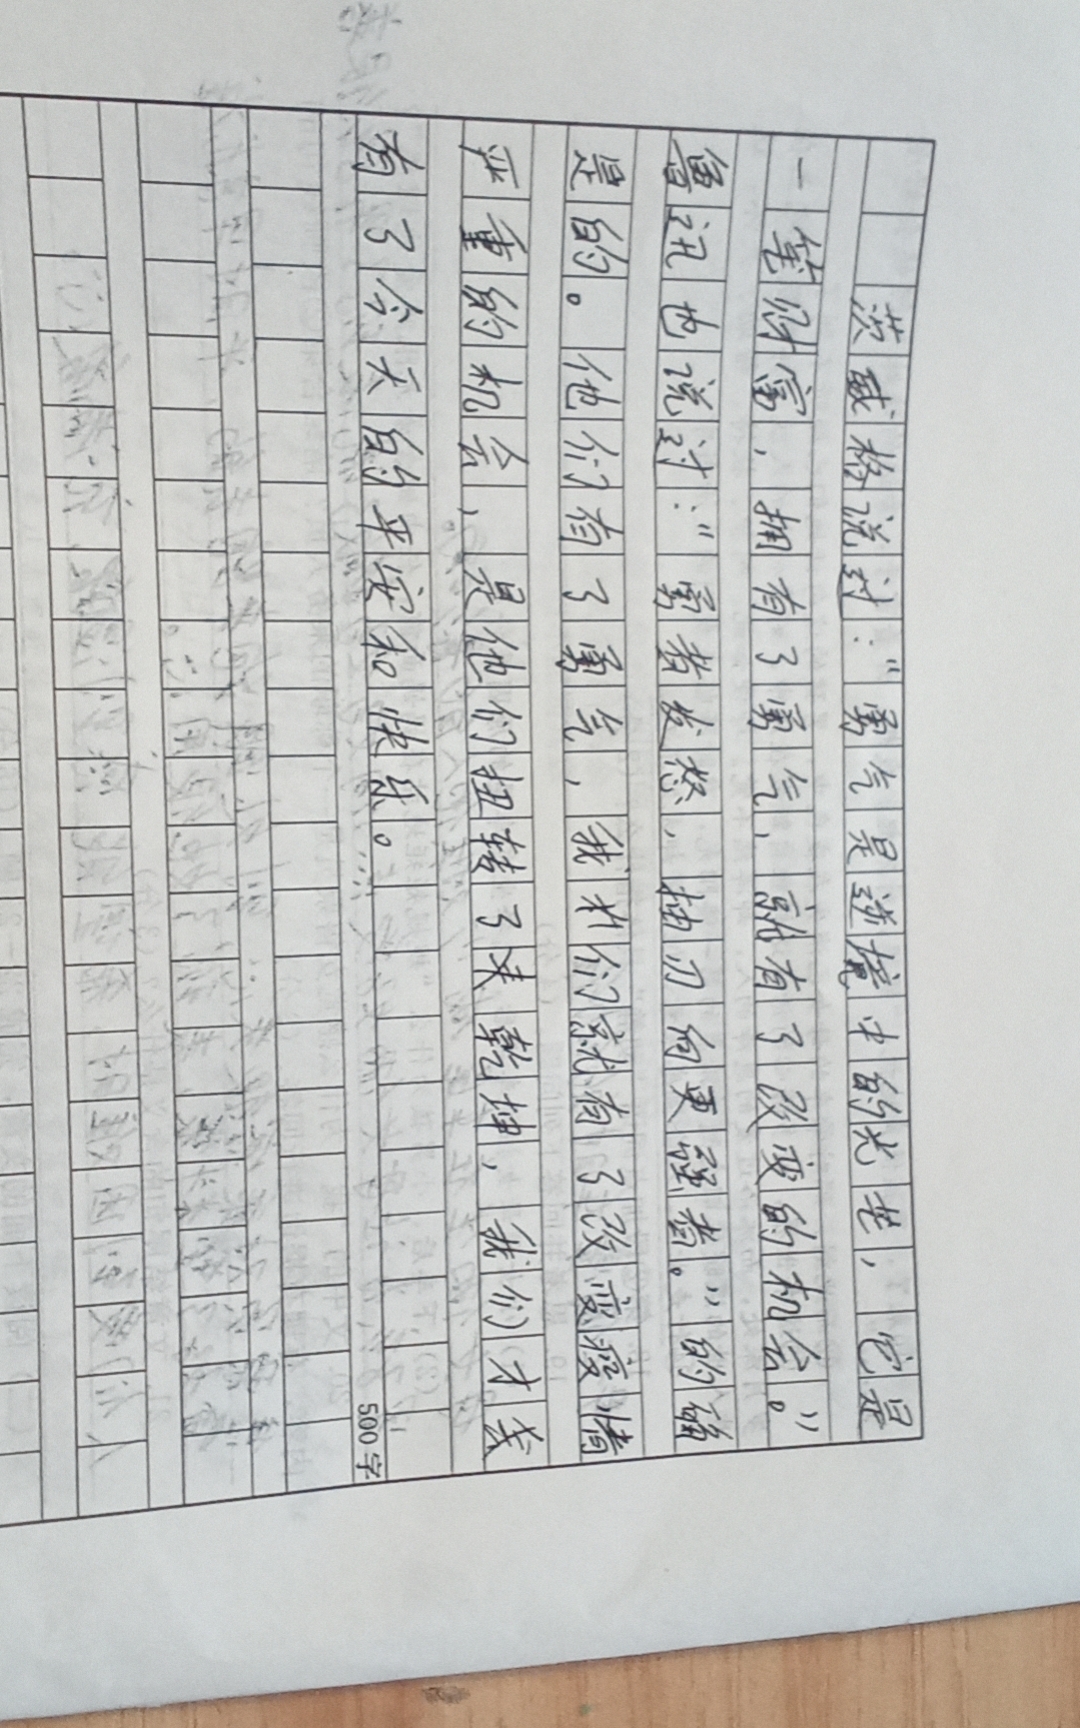 茨威格说过：“勇气是逆境中的光芒，它是
一笔财富，拥有了勇气，就有了改变的机会。”
鲁迅也说过：“勇者发怒，抽刀向更强者。”的确
是的。他们有了勇气，我们就有了改变疫情
严重的机会，是他们扭转了乾坤，我们才
有了今天的平安和快乐。
500字